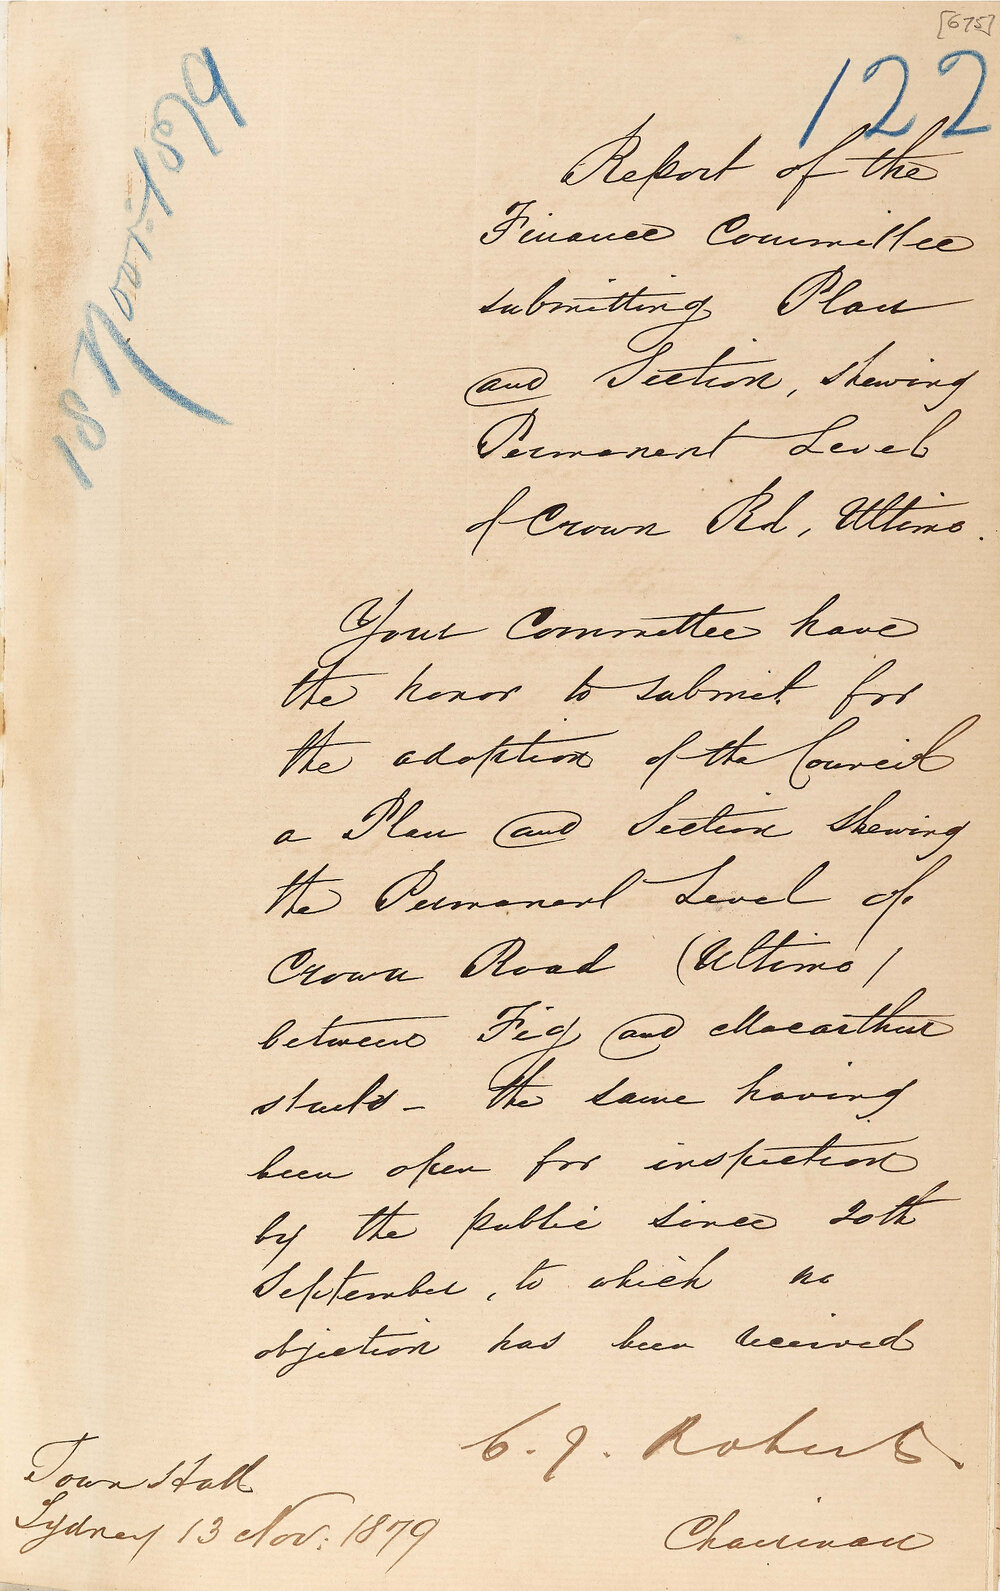 [675]
122
18 Novr. 1879
Report of the
Finance Committee
submitting Plan
and Section, shewing
Permanent Level
of Crown Rd, Ultimo.
Your Committee have
the honor to submit for
the adoption of the Council
a Plan and Section shewing
the Permanent Level of
Crown Road (Ultimo)
between Fig and Macarthur
streets - the same having
been open for inspection
by the public since 20th
September, to which no
objection has been received
C. J. Roberts.
Chairman
Town Hall
Sydney 13 Nov: 1879